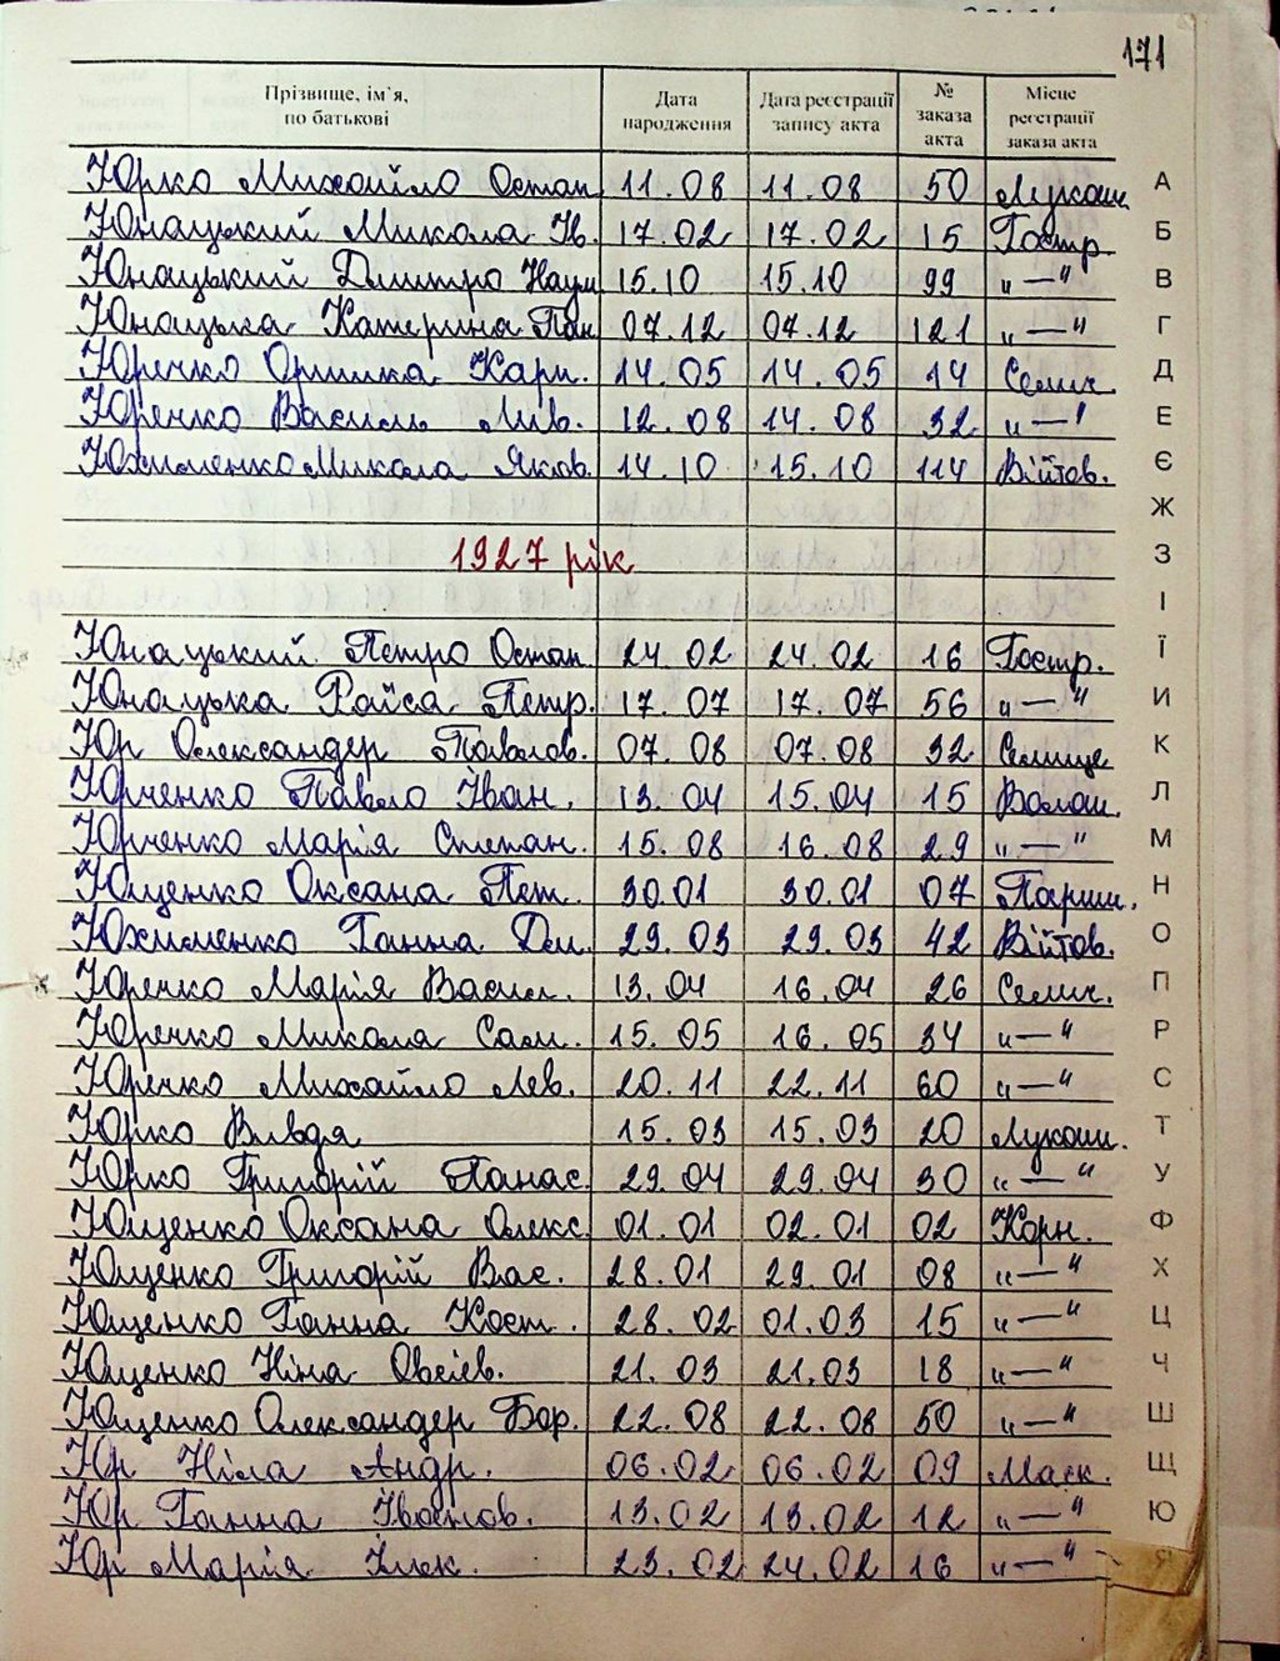 171
Прізвище, ім'я, по батькові Дата народження Дата реєстрації запису акта № заказа акта Місце реєстрації заказа акта
Юрко Михайло Остап 11.08 11.08 50 Лукаш. А
Юнацький Микола Ів. 17.02 17.02 15 Гостр. Б
Юнацький Дмитро Наум 15.10 15.10 99 „—“ В
Юнацька Катерина Пан 07.12 07.12 121 „—“ Г
Юречко Оришка Карп. 14.05 14.05 14 Селищ. Д
Юречко Василь Лив. 12.08 14.08 32 „—“ Е
Юхименко Микола Яков. 14.10 15.10 114 Війтов. Є
Ж
1927 рік З
І
Юнацький Петро Остап 24.02 24.02 16 Гостр. Ї
Юнацька Раїса Петр. 17.07 17.07 56 „—“ И
Юр Олександер Павлов. 07.08 07.08 32 Селище К
Юрченко Павло Іван. 13.04 15.04 15 Волош. Л
Юрченко Марія Степан. 15.08 16.08 29 „—“ М
Ющенко Оксана Пет. 30.01 30.01 07 Парши. Н
Юхименко Ганна Дм. 29.03 29.03 42 Війтов. О
Юречко Марія Васил. 13.04 16.04 26 Селищ. П
Юречко Микола Сам. 15.05 16.05 34 „—“ Р
Юречко Михайло Лев. 20.11 22.11 60 „—“ С
Юрко Вивдя 15.03 15.03 20 Лукаш. Т
Юрко Григорій Панас. 29.04 29.04 30 „—“ У
Ющенко Оксана Олекс. 01.01 02.01 02 Корн. Ф
Ющенко Григорій Вас. 28.01 29.01 08 „—“ Х
Ющенко Ганна Кост. 28.02 01.03 15 „—“ Ц
Ющенко Ніна Овсієв. 21.03 21.03 18 „—“ Ч
Ющенко Олександер Бор. 22.08 22.08 50 „—“ Ш
Юр Ніла Андр. 06.02 06.02 09 Маск. Щ
Юр Ганна Іванов. 13.02 13.02 12 „—“ Ю
Юр Марія Ілек. 23.02 24.02 16 „—“ Я